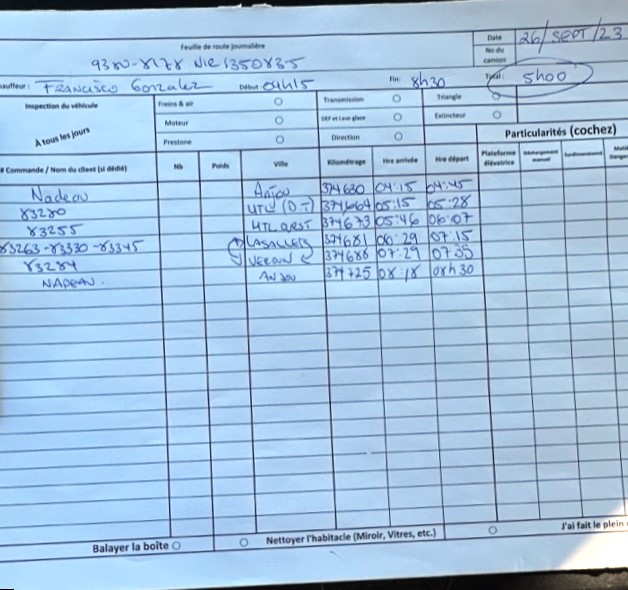 Feuille de route journalière
Date 26/SEPT/23
No du camion
9380-8178 NIR 1350835
auffeur : Francisco Gonzalez Début 04h15 Fin: 8h30 Total: 5h00
Inspection du véhicule
A tous les jours
Freins & air
Transmission
Triangle
Moteur
DEF et Lave glace
Extincteur
Prestone
Direction
Particularités (cochez)
# Commande / Nom du client (si dédié) Nb Poids Ville Kilométrage Hre arrivée Hre départ Plateforme élévatrice Déchargement manuel
Nadeau Anjou 374630 04:15 04:45
83280 MTL (D-T) 374664 05:15 05:28
83255 MTL OUEST 374673 05:46 06:07
83263-83330-83345 LASALLE 374681 06:29 07:15
83284 VERDUN 374688 07:29 07:55
NADEAU. ANJOU 374725 08:18 08h30
Balayer la boîte
Nettoyer l'habitacle (Miroir, Vitres, etc.)
J'ai fait le plein